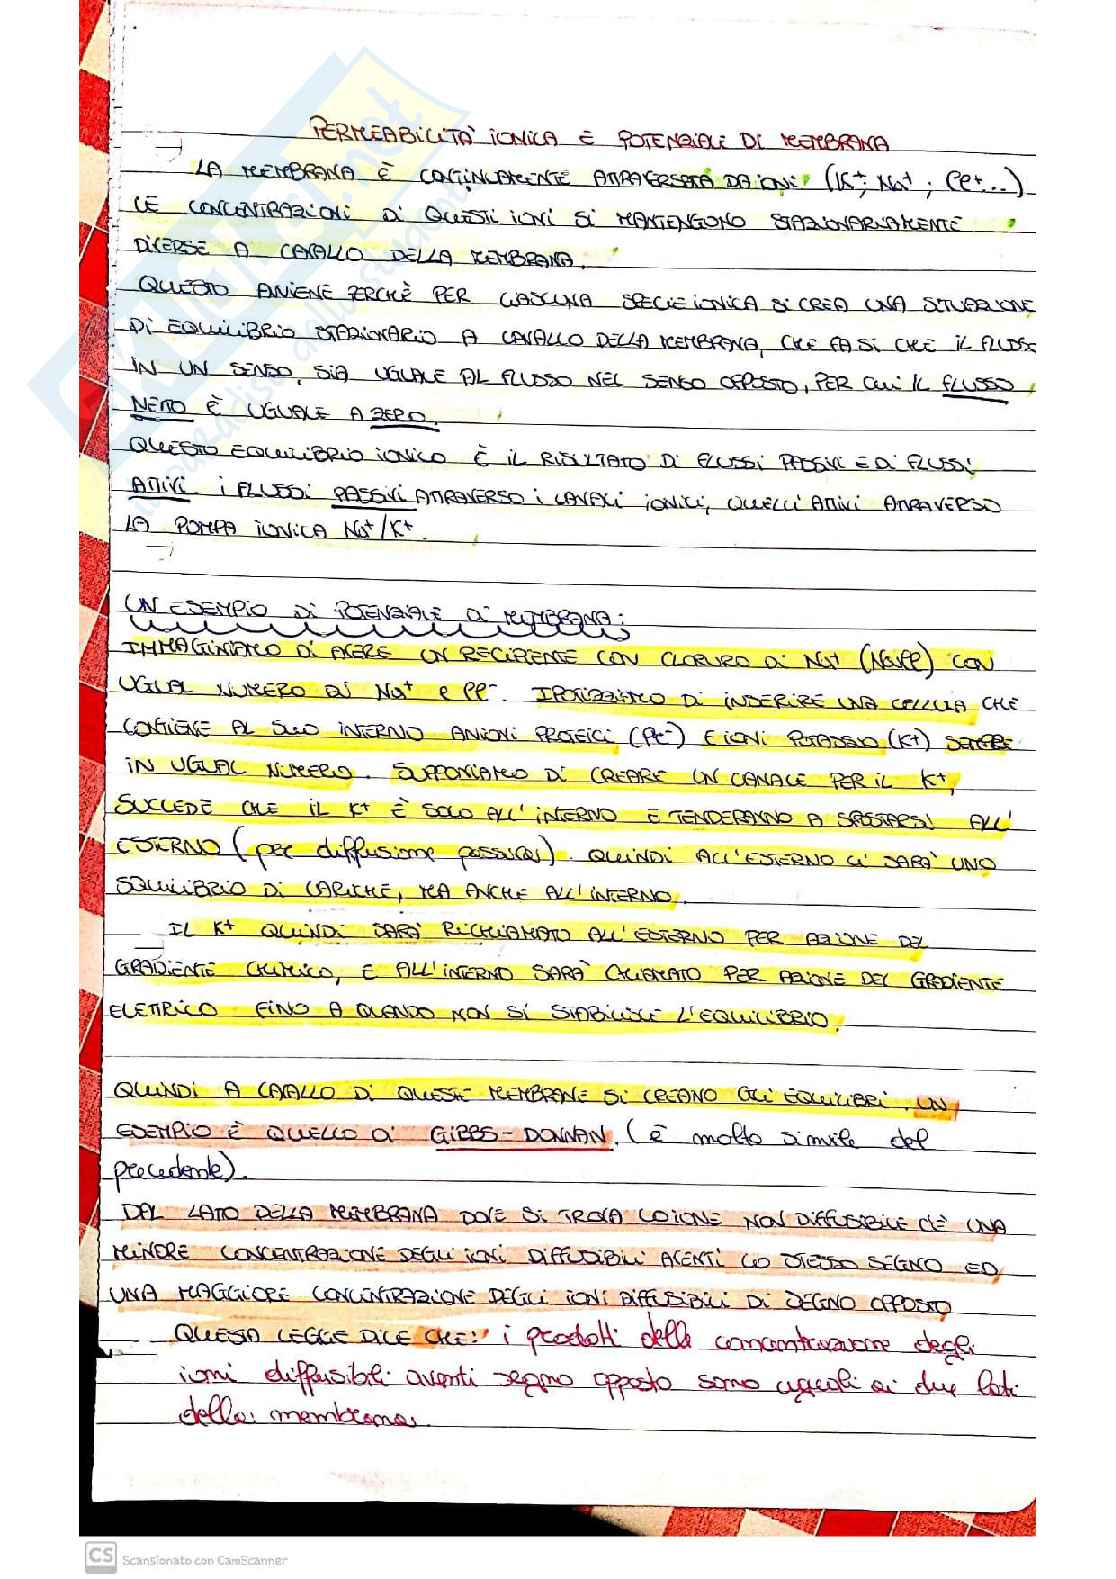 PERMEABILITÀ IONICA E POTENZIALE DI MEMBRANA
LA MEMBRANA È CONTINUAMENTE ATTRAVERSATA DA IONI (K+; Na+; Cl-...)
LE CONCENTRAZIONI DI QUESTI IONI SI MANTENGONO STAZIONARIAMENTE
DIVERSE A CAVALLO DELLA MEMBRANA.
QUESTO AVVIENE PERCHÈ PER CIASCUNA SPECIE IONICA SI CREA UNA SITUAZIONE
DI EQUILIBRIO STAZIONARIO A CAVALLO DELLA MEMBRANA, CHE FA SI CHE IL FLUSSO
IN UN SENSO, SIA UGUALE AL FLUSSO NEL SENSO OPPOSTO, PER CUI IL FLUSSO
NETTO È UGUALE A ZERO.
QUESTO EQUILIBRIO IONICO È IL RISULTATO DI FLUSSI PASSIVI E DI FLUSSI
ATTIVI I FLUSSI PASSIVI ATTRAVERSO I CANALI IONICI, QUELLI ATTIVI ATTRAVERSO
LA POMPA IONICA Na+/K+.
UN ESEMPIO DI POTENZIALE DI MEMBRANA:
IMMAGINIAMO DI AVERE UN RECIPIENTE CON CLORURO DI Na+ (NaCl) CON
UGUAL NUMERO DI Na+ e Cl-. IPOTIZZIAMO DI INSERIRE UNA CELLULA CHE
CONTIENE AL SUO INTERNO ANIONI PROTEICI (Pt-) E IONI POTASSIO (K+) SEMPRE
IN UGUAL NUMERO. SUPPONIAMO DI CREARE UN CANALE PER IL K+,
SUCCEDE CHE IL K+ È SOLO ALL'INTERNO E TENDERANNO A SPOSTARSI ALL'
ESTERNO (per diffusione passiva). QUINDI ALL'ESTERNO CI SARÀ UNO
SQUILIBRIO DI CARICHE, MA ANCHE ALL'INTERNO.
IL K+ QUINDI SARÀ RICHIAMATO ALL'ESTERNO PER AZIONE DEL
GRADIENTE CHIMICO, E ALL'INTERNO SARÀ CHIAMATO PER AZIONE DEL GRADIENTE
ELETTRICO FINO A QUANDO NON SI STABILISCE L'EQUILIBRIO.
QUINDI A CAVALLO DI QUESTE MEMBRANE SI CREANO GLI EQUILIBRI. UN
ESEMPIO È QUELLO DI GIBBS-DONNAN. (è molto simile del
precedente).
DAL LATO DELLA MEMBRANA DOVE SI TROVA LO IONE NON DIFFUSIBILE C'È UNA
MINORE CONCENTRAZIONE DEGLI IONI DIFFUSIBILI AVENTI LO STESSO SEGNO ED
UNA MAGGIORE CONCENTRAZIONE DEGLI IONI DIFFUSIBILI DI SEGNO OPPOSTO
QUESTA LEGGE DICE CHE: i prodotti della concentrazione degli
ioni diffusibili aventi segno opposto sono uguali ai due lati
della membrana.
CS Scansionato con CamScanner